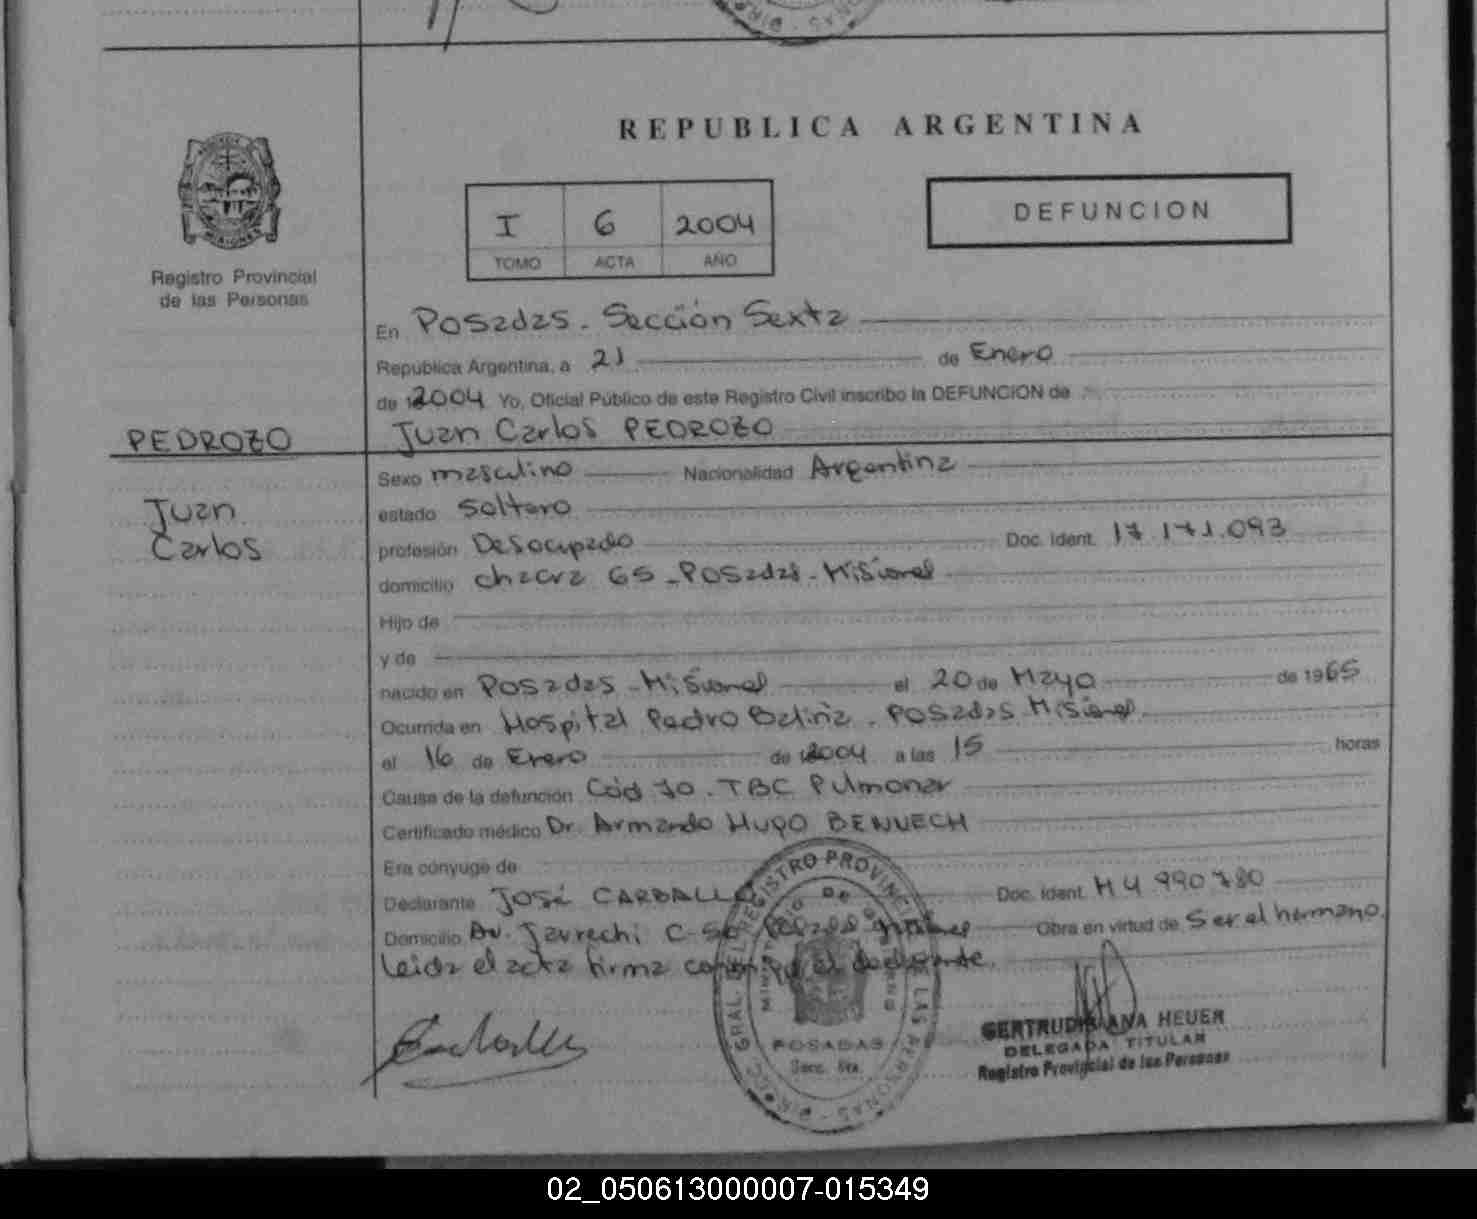 REPUBLICA ARGENTINA
I 6 2004
TOMO ACTA AÑO
DEFUNCION
Registro Provincial
de las Personas
En Posadas - Sección Sexta
República Argentina, a 21 de Enero
de 2004 Yo, Oficial Público de este Registro Civil inscribo la DEFUNCION de
PEDROZO
Juan Carlos PEDROZO
Juan
Carlos
Sexo masculino Nacionalidad Argentina
estado soltero
profesión Desocupado Doc. Ident. 17.171.093
domicilio chacra 65 - Posadas - Misiones
Hijo de
y de
nacido en Posadas - Misiones el 20 de Mayo de 1965
Ocurrida en Hospital Pedro Baliña - Posadas Misiones
el 16 de Enero de 2004 a las 15 horas
Causa de la defunción Cód 10 - TBC Pulmonar
Certificado médico Dr. Armando Hugo BENNECH
Era cónyuge de
Declarante José CARBALLO Doc. Ident. M 4 990 780
Domicilio Av. Jauretchi Posadas Misiones Obra en virtud de Ser el hermano
Leida el acta firma el declarante.
DIR. GRAL. DEL REGISTRO PROVINCIAL DE LAS PERSONAS
MINISTERIO DE GOBIERNO
POSADAS
Secc. 6ta.
GERTRUDIS ANA HEUER
DELEGADA TITULAR
Registro Provincial de las Personas
02_050613000007-015349